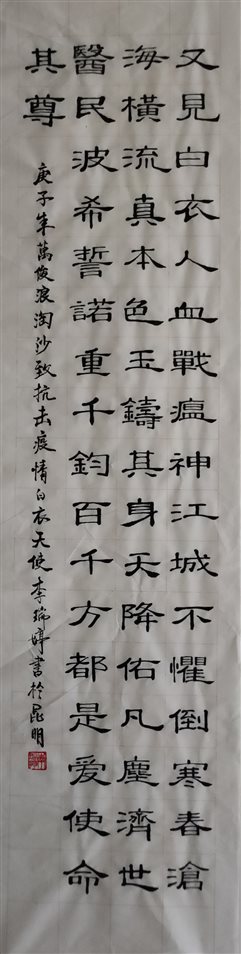 又見白衣人血戰瘟神江城不懼倒寒春滄
海橫流真本色玉鑄其身天降佑凡塵濟世
醫民波希誓諾重千鈞百千方都是愛使命
其尊
庚子年萬俊浪淘沙致抗击疫情白衣天使李瑞婷書於昆明